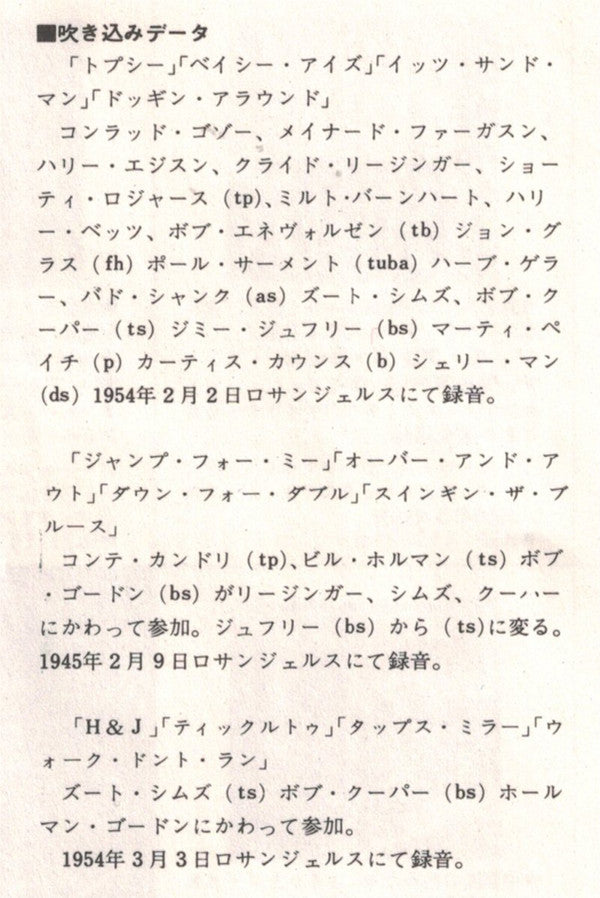 ■吹き込みデータ
「トプシー」「ベイシー・アイズ」「イッツ・サンド・
マン」「ドッギン・アラウンド」
コンラッド・ゴゾー、メイナード・ファーガスン、
ハリー・エジスン、クライド・リージンガー、ショー
ティ・ロジャース (tp)、ミルト・バーンハート、ハリ
ー・ベッツ、ボブ・エネヴォルゼン (tb) ジョン・グ
ラス (fh) ポール・サーメント (tuba) ハーブ・ゲラ
ー、バド・シャンク (as) ズート・シムズ、ボブ・ク
ーパー (ts) ジミー・ジュフリー (bs) マーティ・ペ
イチ (p) カーティス・カウンス (b) シェリー・マン
(ds) 1954年2月2日ロサンジェルスにて録音。
「ジャンプ・フォー・ミー」「オーバー・アンド・ア
ウト」「ダウン・フォー・ダブル」「スインギン・ザ・ブ
ルース」
コンテ・カンドリ (tp)、ビル・ホルマン (ts) ボブ
・ゴードン (bs) がリージンガー、シムズ、クーハー
にかわって参加。ジュフリー (bs) から (ts)に変る。
1945年2月9日ロサンジェルスにて録音。
「H&J」「ティックルトゥ」「タップス・ミラー」「ウ
ォーク・ドント・ラン」
ズート・シムズ (ts) ボブ・クーパー (bs) ホール
マン・ゴードンにかわって参加。
1954年3月3日ロサンジェルスにて録音。